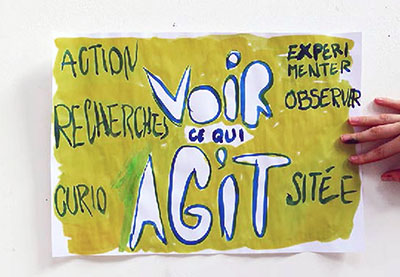 ACTION
RECHERCHES
CURIO
VOIR
CE QUI
AGIT
EXPERI
MENTER
OBSERVER
SITÉE